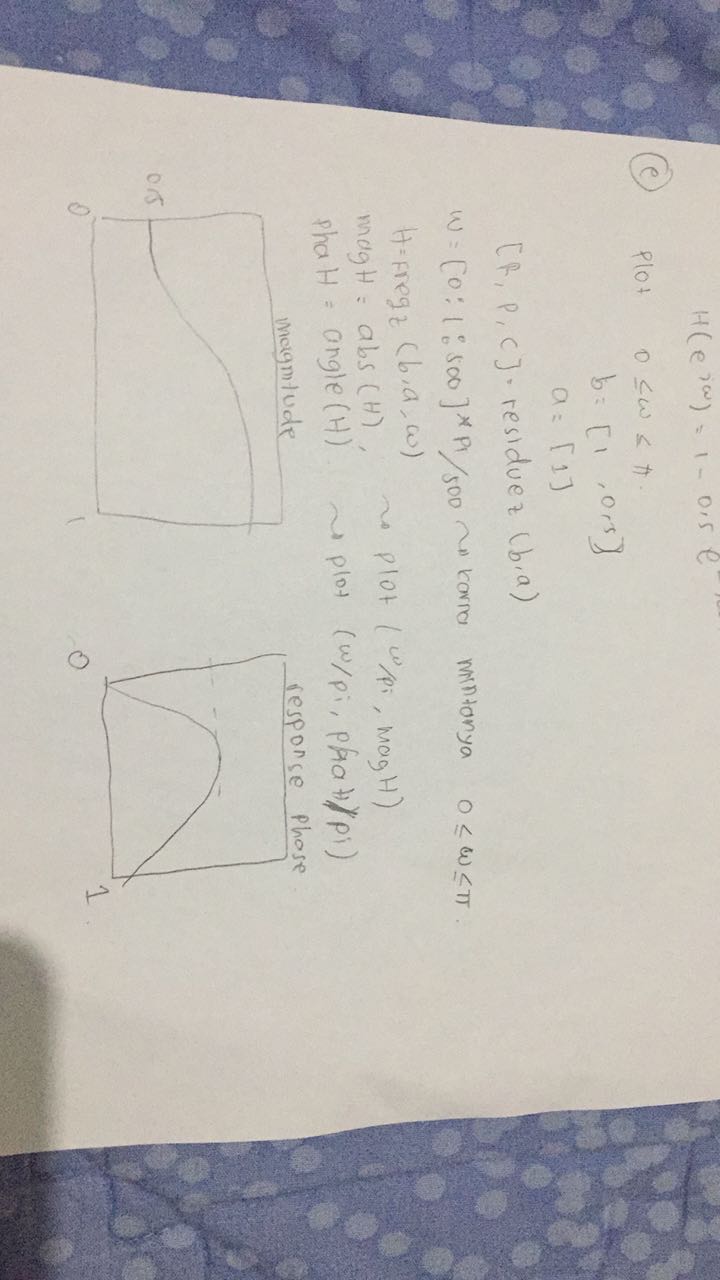 H(e^jω) = 1 - 0,5 e^-
(e) Plot 0 ≤ ω ≤ π.
b = [1 , 0,5]
a = [1]
[R, P, C] = residuez (b,a)
w = [0:1:500]*pi/500 ~> karna mintanya 0 ≤ ω ≤ π.
H = freqz (b,a,w)
magH = abs(H); ~> plot (w/pi, magH)
phaH = angle(H) ~> plot (w/pi, phaH/pi)
magnitude
response phase.
0,5
0
1
0
1